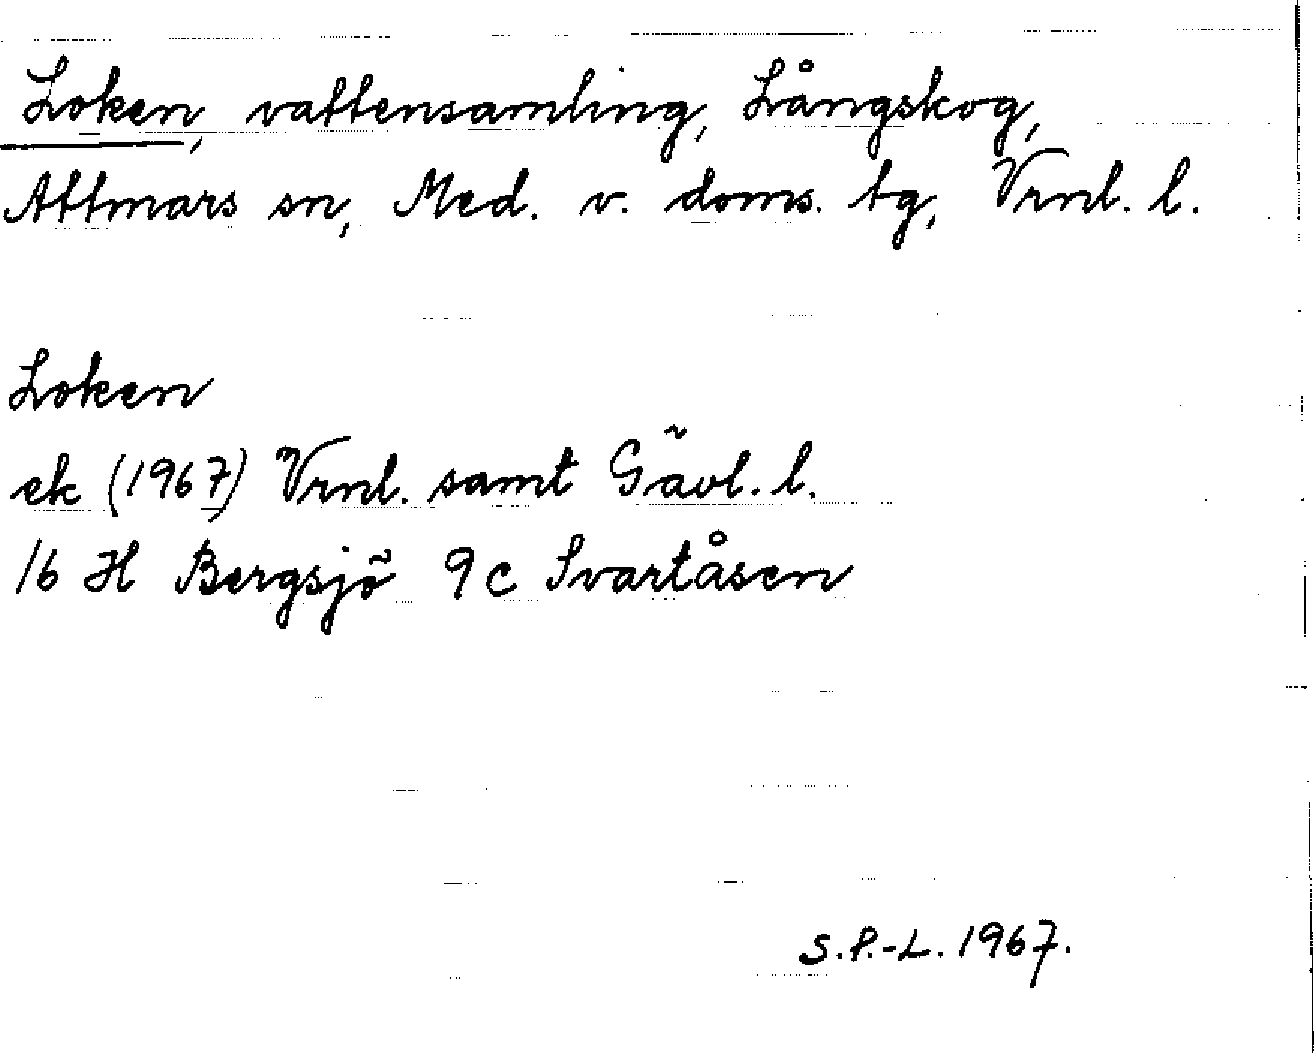 Loken, vattensamling, Långskog,
Attmars sn, Med. v. doms. tg, Vrnl. l.
Loken
ek (1967) Vrnl. samt Gävl. l.
16 H Bergsjö 9c Svartåsen
S.P.-L. 1967.